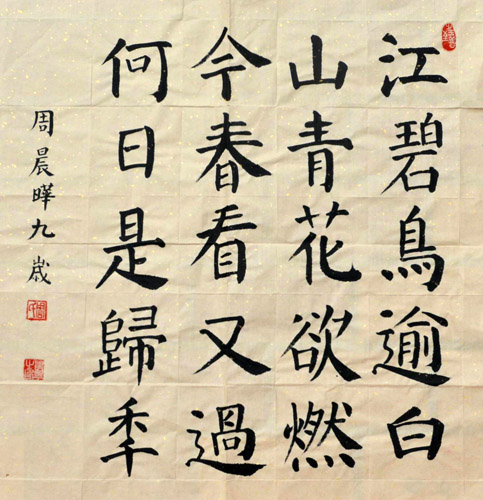 江碧鳥逾白
山青花欲燃
今春看又過
何日是歸秊
周晨曄九歲